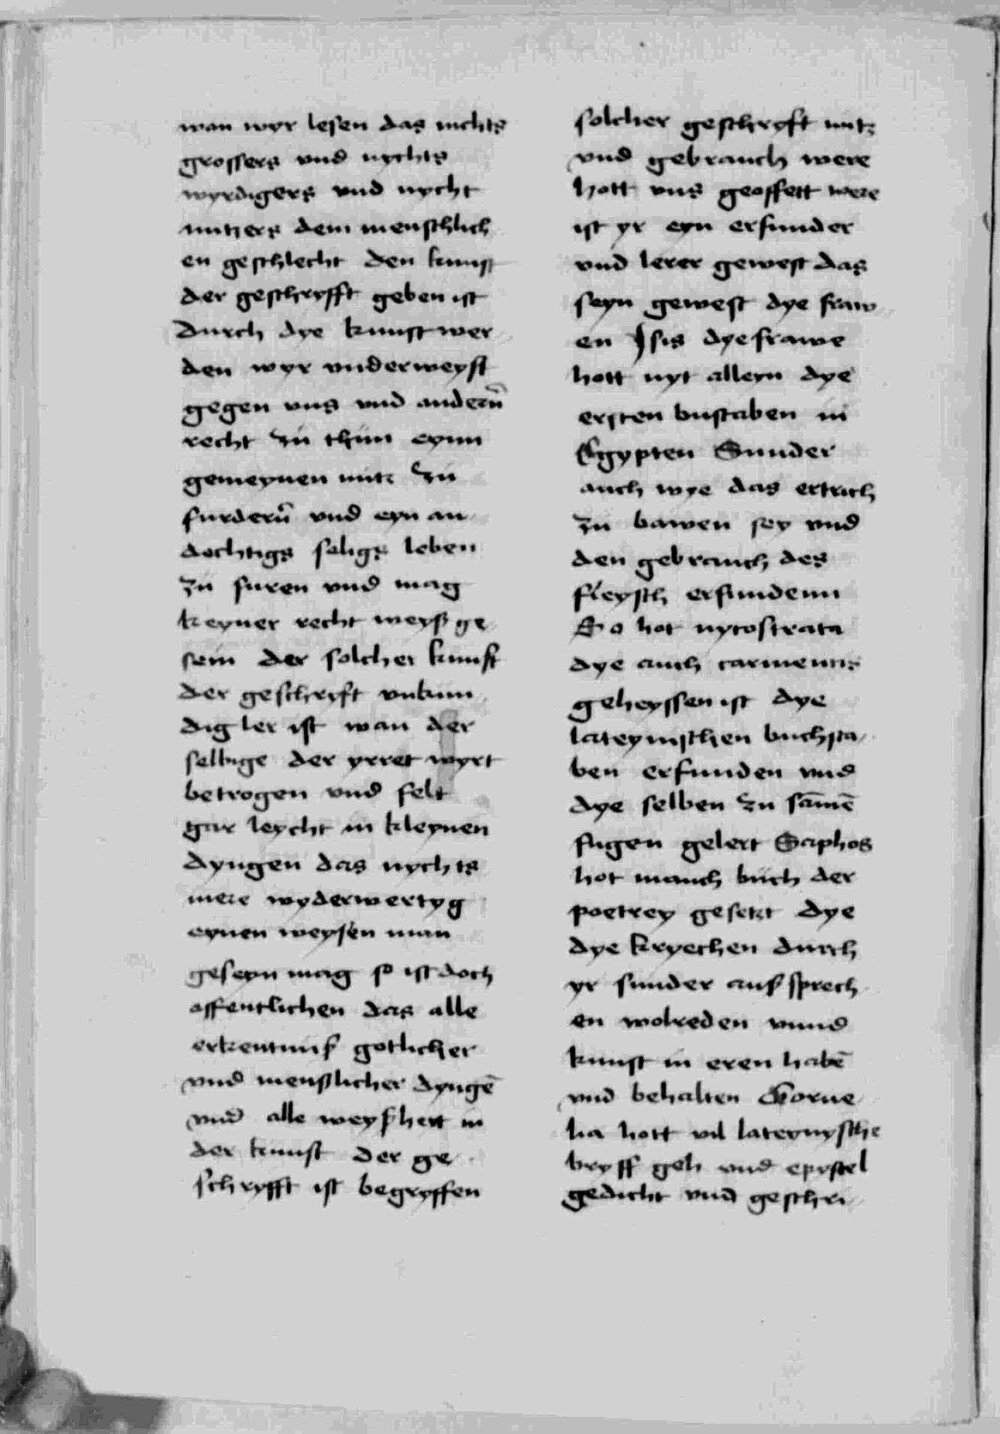 wan wyr lesen das nichts
grossers vnd nychts
wyrdigers vnd nycht
nutzers dem menschlich
en geschlecht den kunst
der geschryfft geben ist
durch dye kunst wer
den wyr vnderweyst
gegen vns vnd andern̄
recht zu thun eynn
gemeynen nutz zu
furdern̄ vnd eyn an
dechtigs seligs leben
zu furen vnd mag
keyner recht weyß ge
sein der solcher kunst
der geschryft vnkun
dig ler ist wan der
selbige der yrret wyrt
betrogen vnd felt
gar leycht in kleynen
dyngen das nychts
mere wyderwertyg
eynen weysen man
geseyn mag so ist doch
offentlichen das alle
erkentniß gotlicher
vnd menslicher dyngē
vnd alle weyßheit in
der kunst der ge
schryfft ist begryffen
solcher geschryft nutz
vnd gebrauch were
hott vns geoffett were
ist yr eyn erfunder
vnd lerer gewest das
seyn gewest dye fraw
en Isis dye frawe
hott nyt alleyn dye
ersten bustaben in
Egypten Sunder
auch wye das ertrich
zu bawen sey vnd
den gebrauch des
fleysch erfundenn
So hot nycostrata
dye auch carmentis
geheyssen ist dye
lateynischen buchsta
ben erfunden vnd
dye selben zu sāmē
fugen gelert Saphos
hot manch buch der
poetrey gesetzt dye
dye kryechen durch
yr sunder auß sprech
en wolreden vnnd
kunst in eren habē
vnd behalten Corne
lia hott vil lateynysche
bryff geh vnd epystel
gedicht vnd geschri